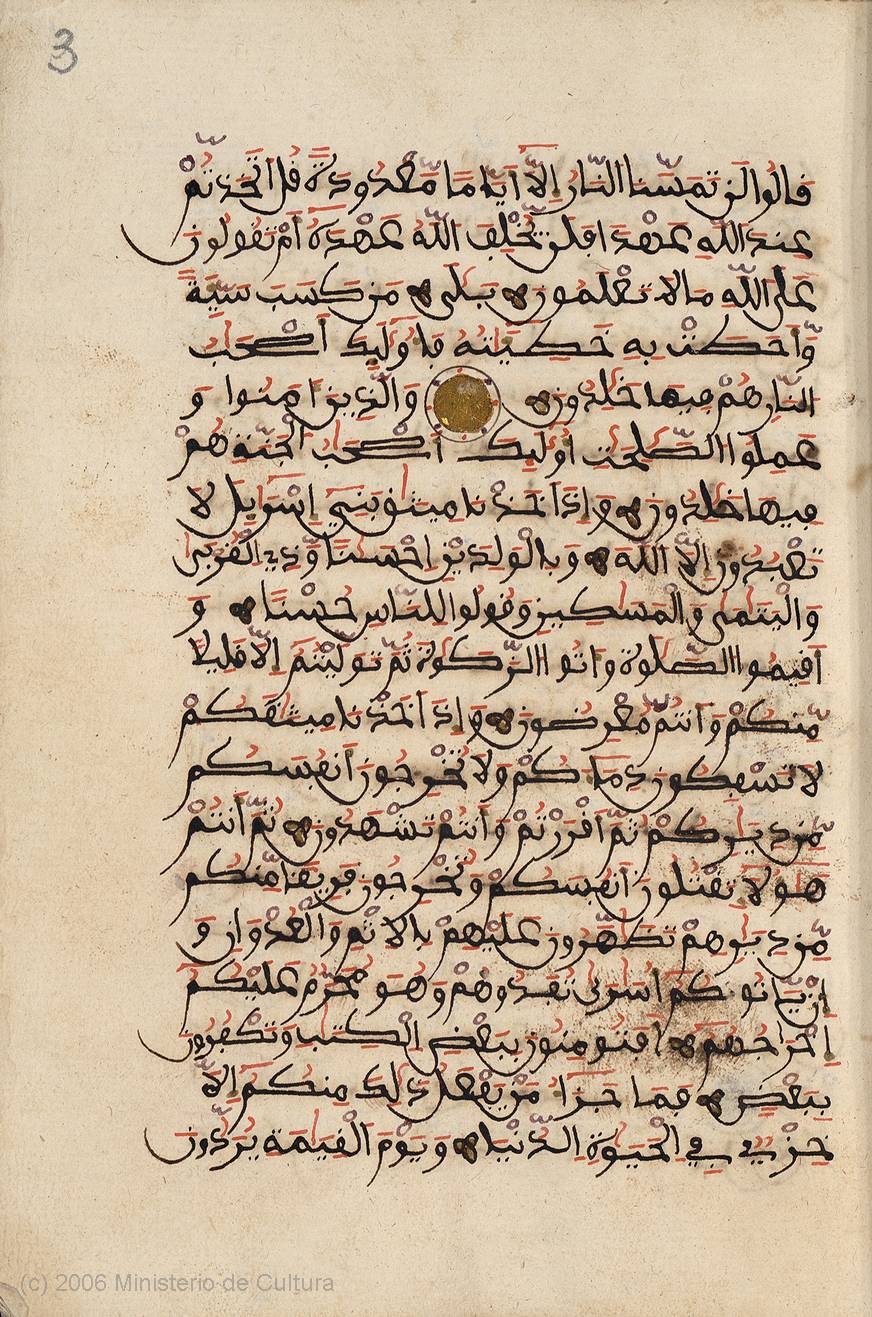 3
قالوا لن تمسنا النار إلا أياما معدودة قل اتخذتم
عند الله عهدا فلن يخلف الله عهده أم تقولون
على الله ما لا تعلمون بلى من كسب سيية
وأحطت به خطيته فأوليك أصحب
النار هم فيها خلدون والذين امنوا و
عملوا الصلحت أوليك أصحب الجنة هم
فيها خلدون وإذ أخذنا ميثق بني إسرايل لا
تعبدون إلا الله وبالولدين إحسنا وذي القربى
واليتمى والمسكين وقولوا للناس حسنا و
أقيموا الصلوة واتوا الزكوة ثم توليتم إلا قليلا
منكم وأنتم معرضون وإذ أخذنا ميثقكم
لا تسفكون دماكم ولا تخرجون أنفسكم
من ديركم ثم أقررتم وأنتم تشهدون ثم أنتم
هولا تقتلون أنفسكم وتخرجون فريقا منكم
من ديرهم تظهرون عليهم بالاثم والعدون و
إن ياتوكم أسرى تفدوهم وهو محرم عليكم
إخراجهم أفتومنون ببعض الكتب وتكفرون
ببعض فما جزا من يفعل ذلك منكم إلا
خزي في الحيوة الدنيا ويوم القيمة يردون
(c) 2006 Ministerio de Cultura